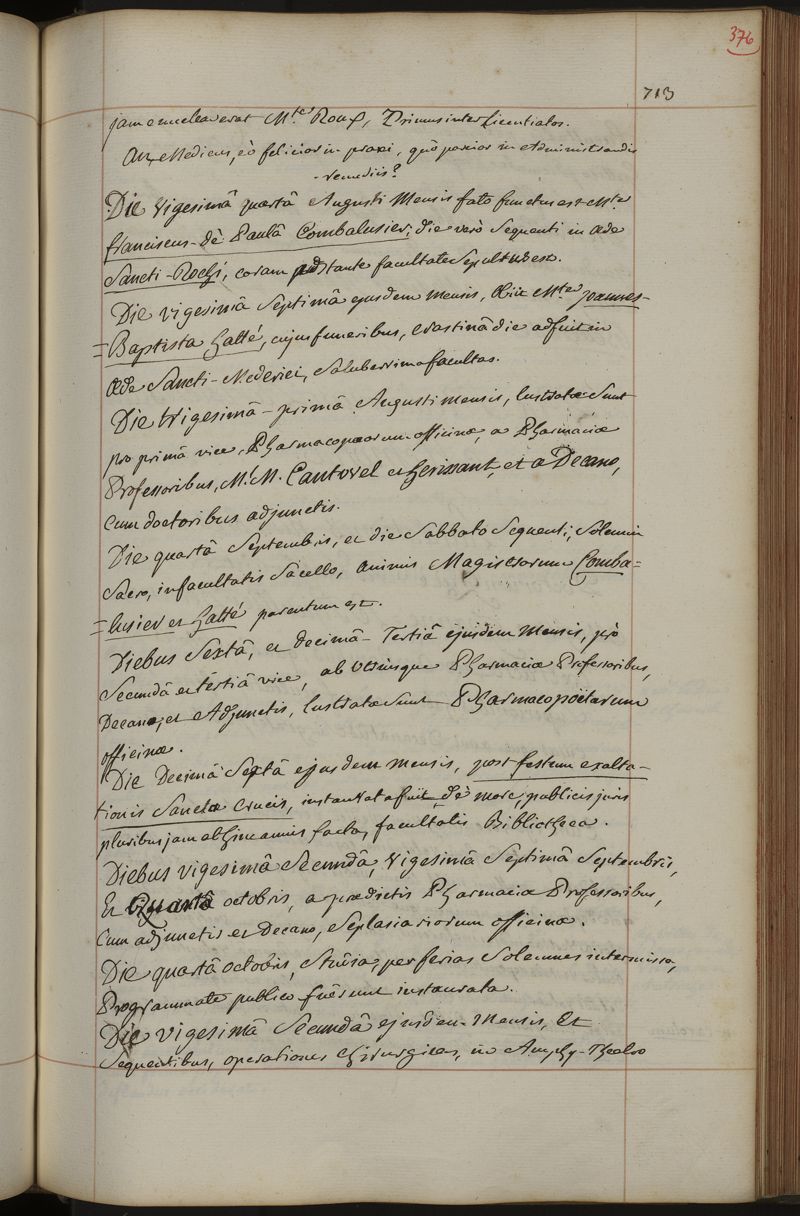 376
713
jam enucleaverat M.ter Roux, Primus inter Licentiatos.
An Medicus, eò felicior in praxi, quò parcior in administrandis
- remediis?
Die vigesimâ quartâ Augusti mensis fato functus est M.ter
franciscus-dè Paulâ Combalusier, die verò sequenti in aede
Sancti-Rochi, coram adstante facultate sepultus est.
Die vigesimâ septimâ ejusdem mensis, obiit M.ter joannes-
=Baptista hatté, cujus funeribus, crastinâ die adfuit in
aede Sancti-Mederici, Saluberrima facultas.
Die trigesimâ-primâ Augusti mensis, lustratae sunt
pro primâ vice, Pharmacopaeorum officinae, a Pharmaciae
Professoribus, M.M. Cantwel et herissant, et a Decano,
cum doctoribus adjunctis.
Die quartâ Septembris, et die Sabbato sequenti, Solemni
Sacro, in facultatis Sacello, animis Magistrorum Comba=
=lusier et hatté parentum est.
Diebus sextâ, et decimâ-tertiâ ejusdem mensis, pro
secundâ et tertiâ vice, ab utrinsque Pharmaciae Professoribus,
Decano, et Adjunctis, lustratae sunt Pharmacopoëtarum
officinae.
Die decimâ sextâ ejusdem mensis, post festum exalta-
tionis Sanctae Crucis, instaurata fuit dè more, publici juris
pluribus jam abhinc annis facta, facultatis Bibliotheca.
Diebus vigesimâ secundâ, vigesimâ septimâ Septembris,
Et quartâ octobris, a praedictis Pharmaciae Professoribus,
Cum adjunctis et Decano, Seplasiariorum officinae.
Die quartâ octobris, studia, per ferias Solemnes intermissa,
Programmate publico fuêrunt instaurata.
Die vigesimâ secundâ ejusdem mensis, Et
sequentibus, operationes chirurgicae, in Amphy-Theatro